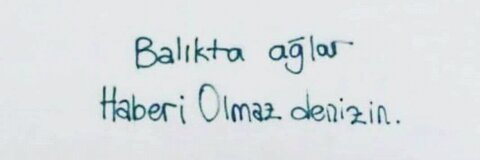 Balıkta ağlar
Haberi Olmaz denizin.